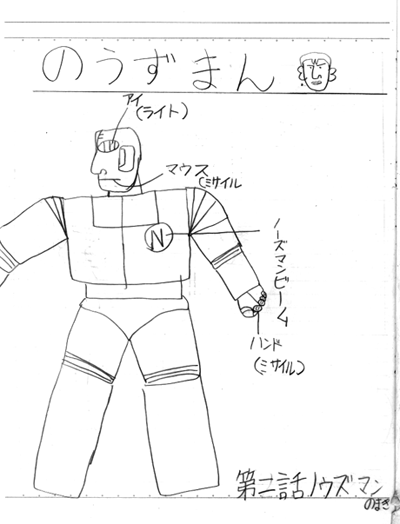 のうずまん
アイ
(ライト)
マウス
(ミサイル
N
ノーズマンビーム
ハンド
(ミサイル)
第二話ノウズマン
のまき